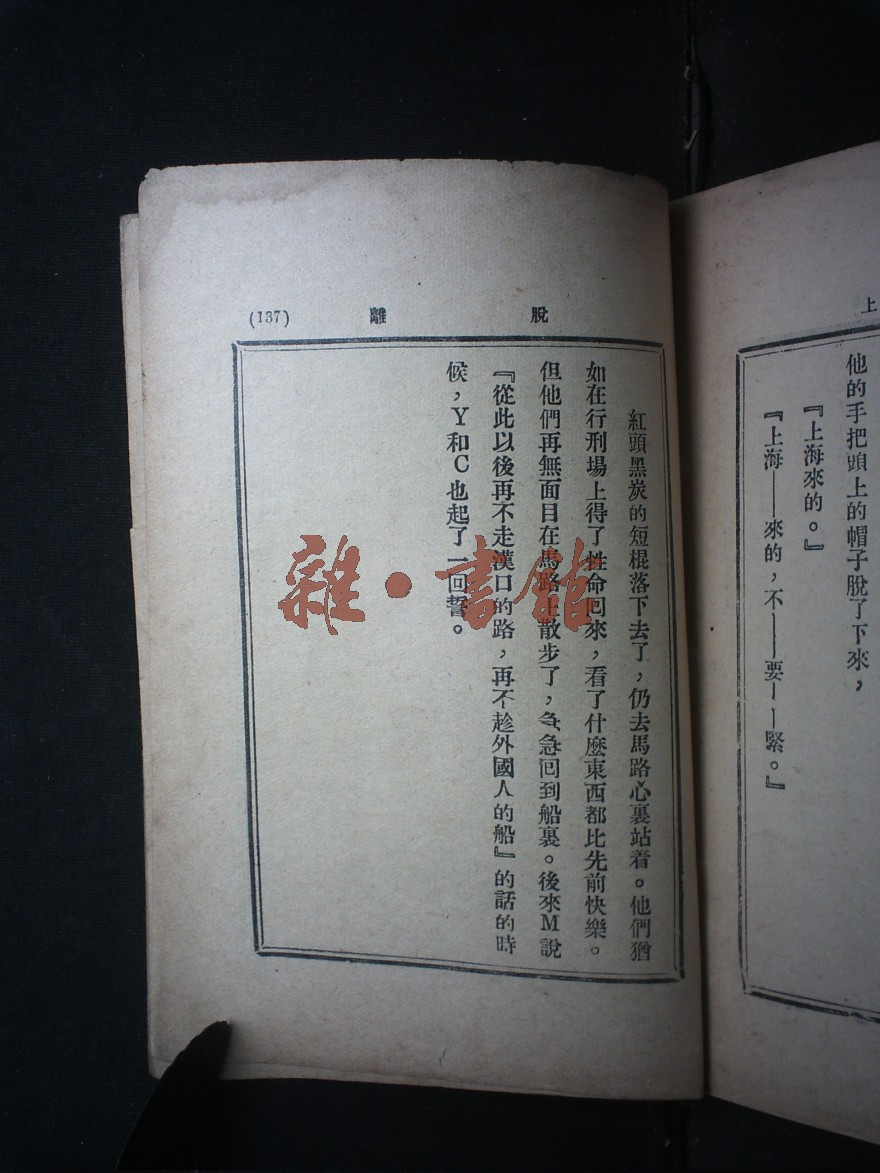 上
他的手把頭上的帽子脫了下來，
『上海來的。』
『上海——來的，不——要——緊。』
脫離
(137)
紅頭黑炭的短棍落下去了，仍去馬路心裏站着。他們猶
如在行刑場上得了性命回來，看了什麼東西都比先前快樂。
但他們再無面目在馬路上散步了，急急回到船裏。後來M說
『從此以後再不走漢口的路，再不趁外國人的船』的話的時
候，Y和C也起了一回誓。
雜·書館